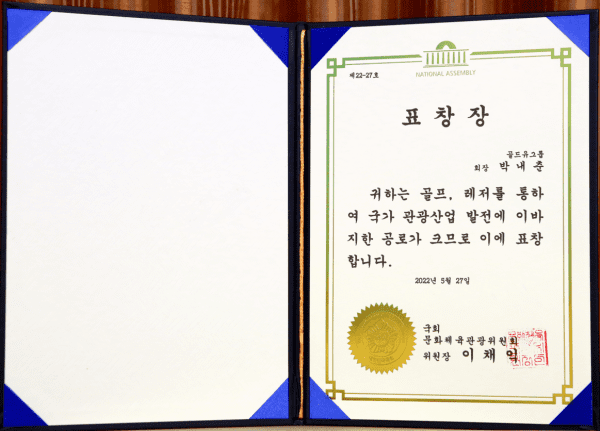 NATIONAL ASSEMBLY
제22-27호
표 창 장
골드유그룹
회장 박 내 춘
귀하는 골프, 레저를 통하
여 국가 관광산업 발전에 이바
지한 공로가 크므로 이에 표창
합니다.
2022년 5월 27일
국회
문화체육관광위원회
위원장 이 채 익